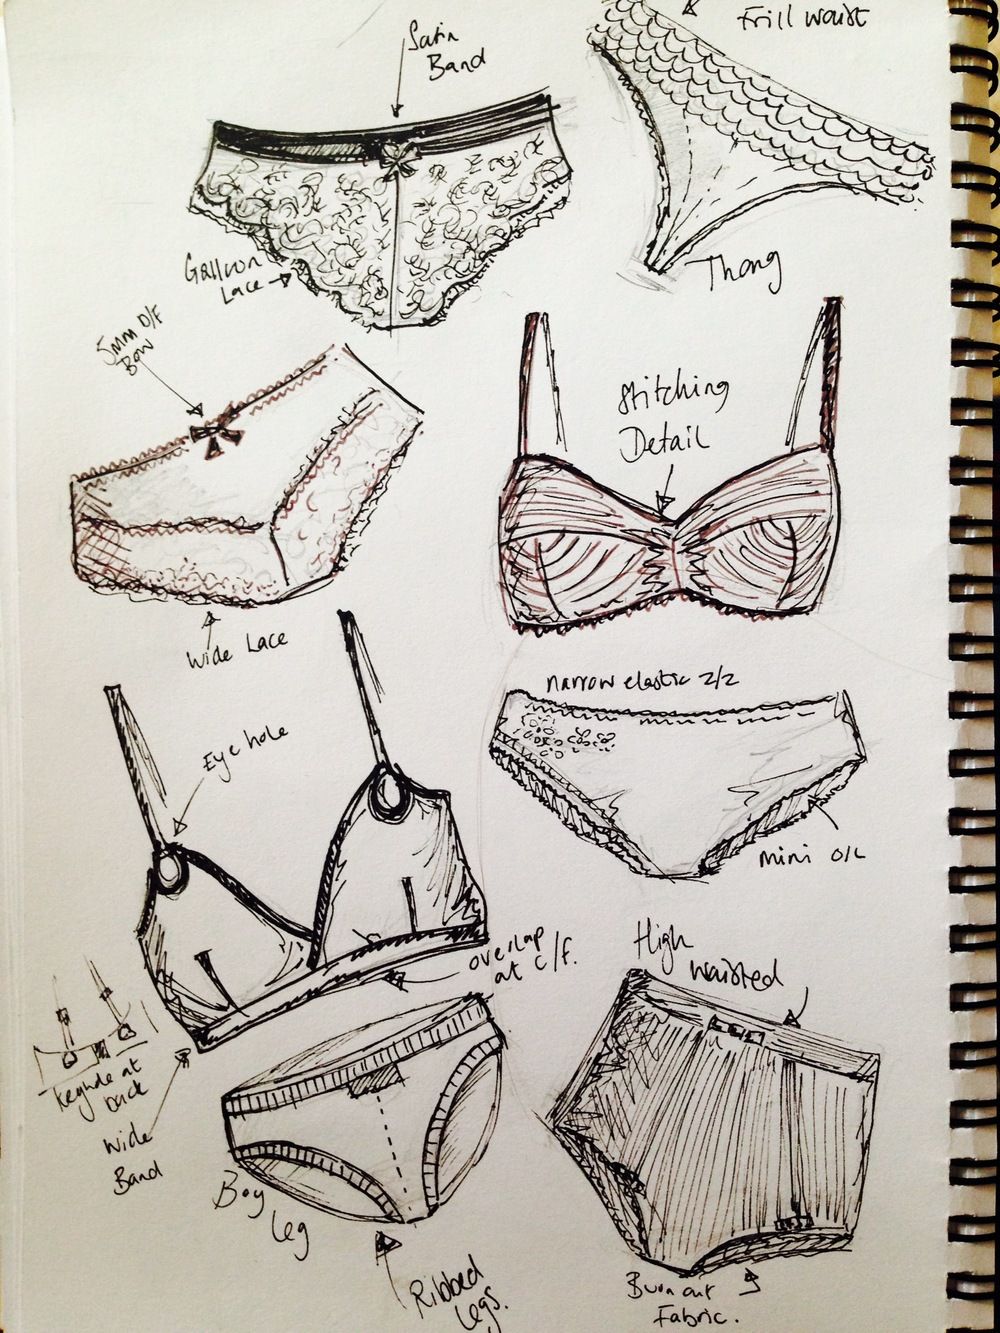 Satin
Band
Frill waist
Galloon
Lace
Thong
5mm D/F
Bow
Stitching
Detail
Wide Lace
narrow elastic 2/2
Eye hole
mini O/L
overlap
at C/F.
High
waisted
Keyhole at
back
Wide
Band
Boy
Leg
Ribbed
Legs.
Burnout
Fabric.